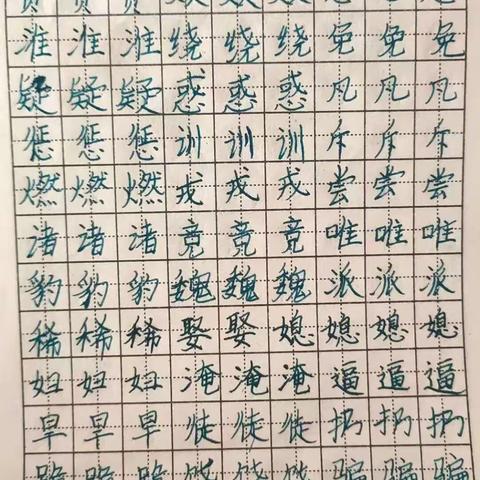 淮淮淮绕绕绕免免免
疑疑疑惑惑惑凡凡凡
惩惩惩训训训斥斥斥
燃燃燃戎戎戎尝尝尝
渚渚渚竟竟竟唯唯唯
豹豹豹魏魏魏派派派
稀稀稀娶娶媳媳媳媳
妇妇妇淹淹淹逼逼逼
旱旱旱徒徒徒扔扔扔
骗骗骗